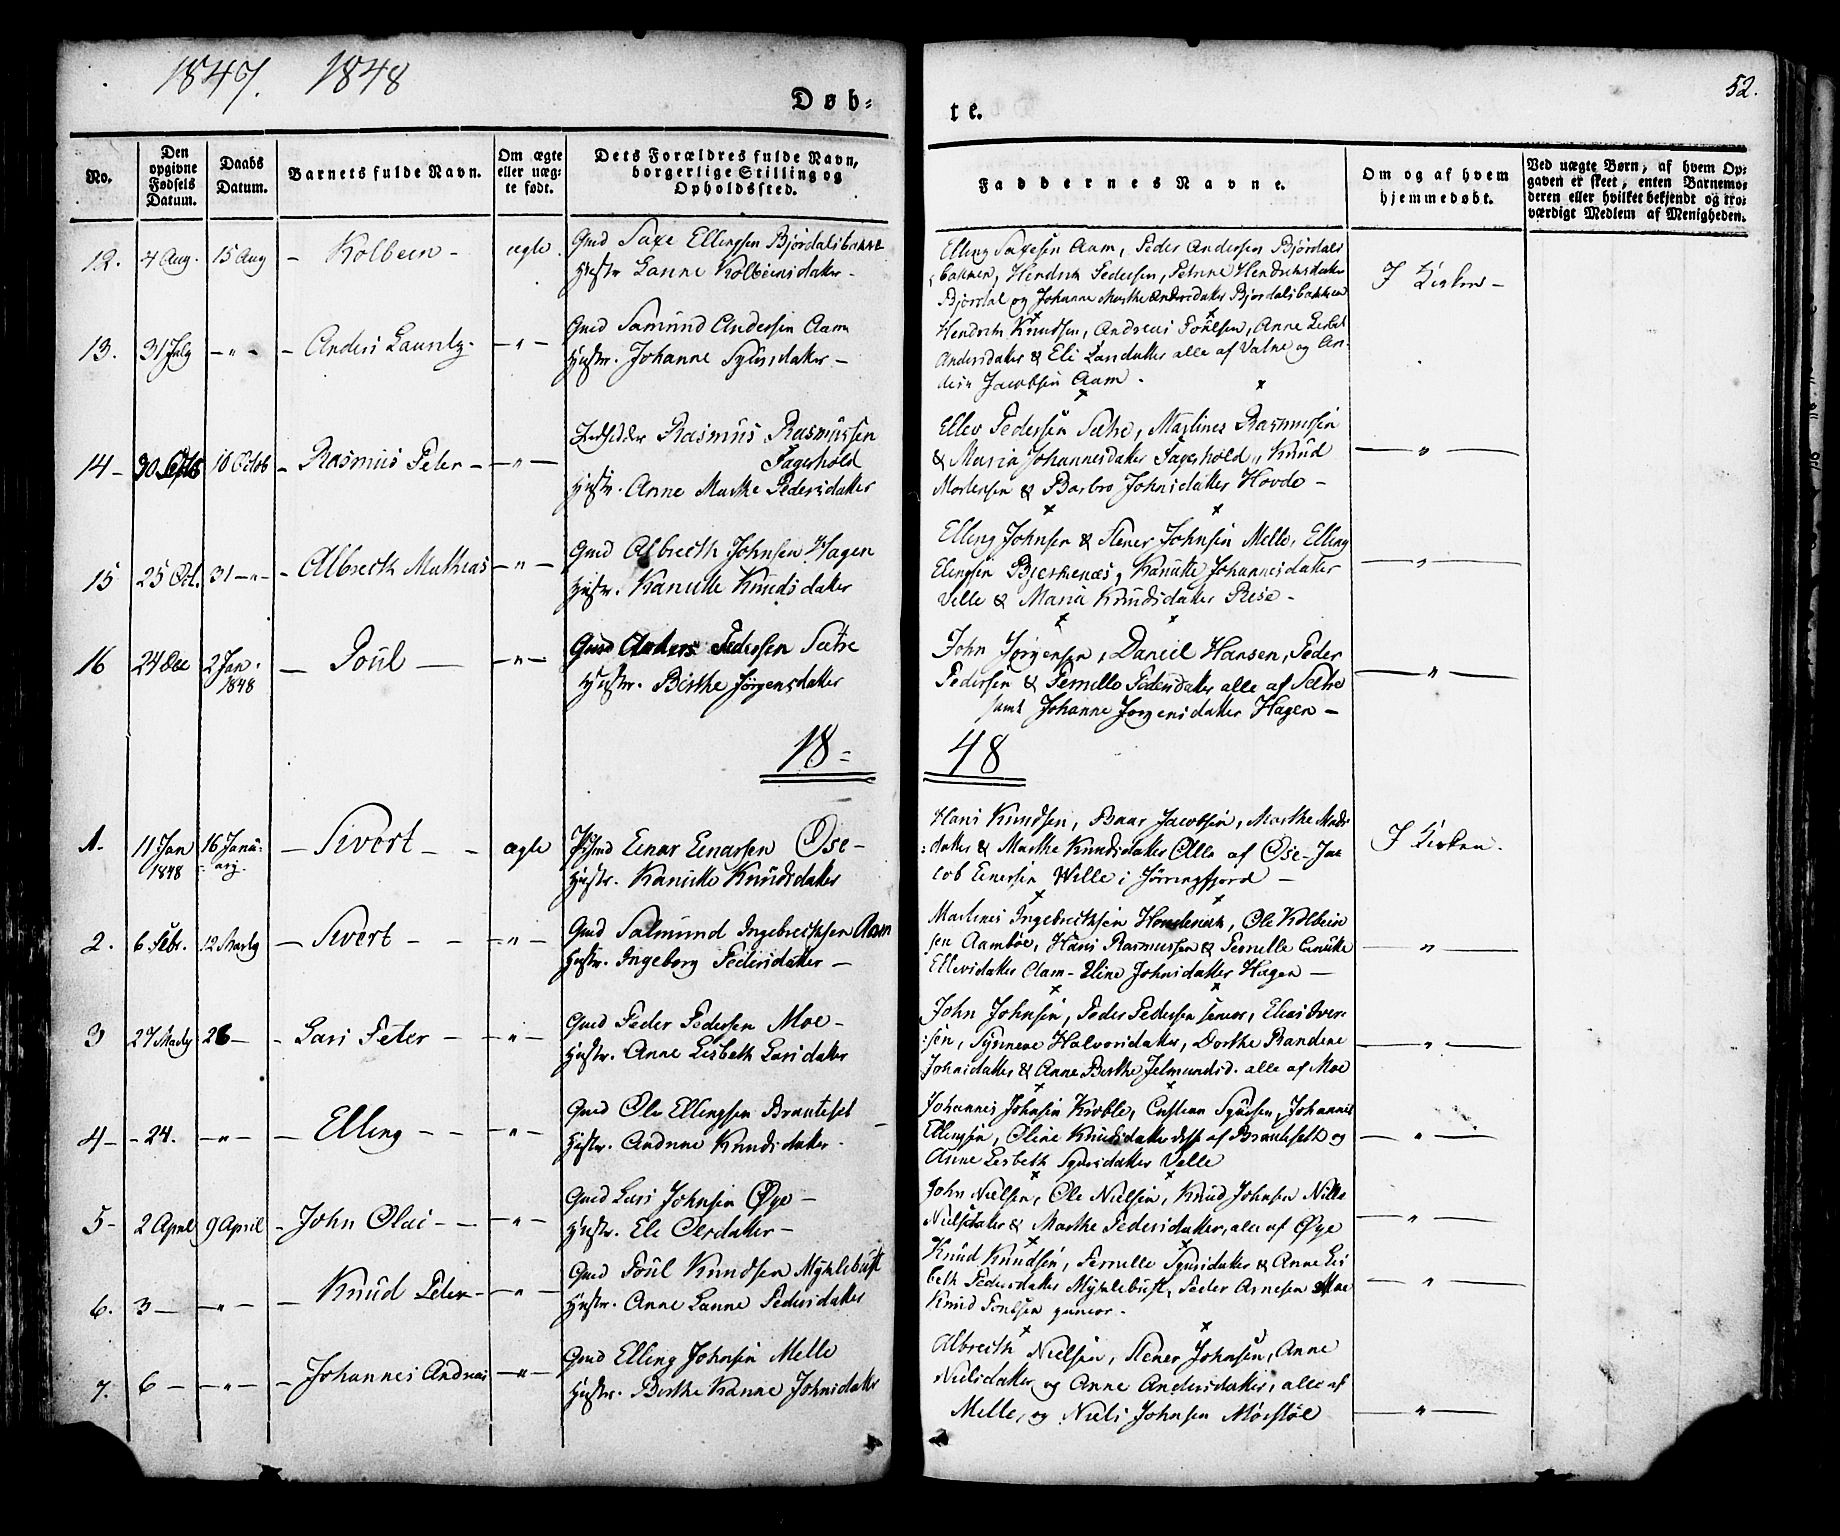 1847. 1848
Døb=
te.
52.
No.
Den opgivne Fødsels Datum.
Daabs Datum.
Barnets fulde Navn.
Om ægte eller uæg-
te født.
Dets Forældres fulde Navn,
borgerlige Stilling og
Opholdssted.
Faddernes Navne.
Om og af hvem
hjemmedøbt.
Ved uægte Børn, af hvem Op-
gaven er skeet, enten Barnemo-
deren eller hvilket bekjendt og tro-
værdigt Medlem af Menigheden.
12. 4 Aug. 15 Aug - Kolbeen - ægte.
Gmd Saxe Ellingsen Bjørdalsbakke
Hustr. Lanne Kolbeensdatter -
Elling Saxesen Aam, Peder Andersen Bjørdals
bakken, Hendrik Pedersen, Petrine Hendriksdatter
Bjørdal og Johanne Marthe Andersdatter Bjørdalsbakken
I Kirken -
13. 31 July - " - - Anders Lauritz - - " -
Gmd Samund Andersen Aam
Hustr. Johanne Syversdatter -
Hendrik Knudsen, Andreas Poulsen, Anne Lisbet
Andersdatter & Eli Larsdatter alle af Vatne og An-
ders Jacobsen Aam -
14 - 30 Septb 10 Octob - Rasmus Peter - - " -
Indsidder Rasmus Rasmussen
Fagerhold
Hustr. Anne Marthe Pedersdatter
Ellev Pedersen Sætre, Martines Rasmussen
& Maria Johannesdatter Fagerhold, Knud
Mortensen & Barbro Johnsdatter Hovde -
- " -
15 25 Oct. 31 - " - - Albrecth Mathias - " -
Gmd Albrecth Johnsen Hagen
Hustr. Kanutte Knudsdatter
Elling Johnsen & Stener Johnsen Melle, Elling
Elingsen Bjerkenæs, Kanutte Johannesdatter
Velle & Maria Knudsdatter Riise -
- " -
16 24 Dec 2 Jan. 1848 - Poul - - " -
Gmd Anders Pedersen Sætre
Hustr. Birthe Jørgensdatter
John Jørgensen, Daniel Hansen, Peder
Pedersen & Pernille Pedersdatter alle af Sætre
samt Johanne Jørgensdatter Hagen -
- " -
18=
48
1. 11 Jan 1848 16 Janu-
arij. - Sivert - - ægte
Gmd Einar Einarsen Øse -
Hustr. Kanutte Knudsdatter
Hans Knudsen, Baar Jacobsen, Marthe Mads
datter & Marthe Knudsdatter Alle af Øse - Ja-
cob Einersen Wille i Jørringfjord -
I Kirken.
2. 6 Febr. 12 Marts - Sivert - - - " -
Gmd Salmund Ingebrecktsen Aam
Hustr. Ingeborg Pedersdatter -
Martines Ingebrecktsen, Ole Kolbein
sen Aambøe, Hans Rasmussen & Pernelle Canutte
Ellevsdatter Aam - Eline Johnsdatter Hagen -
- " -
3 27 Marts 26 - - Lars Peter - - " -
Gmd Peder Pedersen Moe -
Hustr. Anne Lisbeth Larsdatter
John Johnsen, Peder Pedersen senior, Elias Iver-
sen, Synneve Halvorsdatter, Dorthe Randine
Johnsdatter & Anne Berthe Jelmundsd. alle af Moe
- " -
4 - - 24. - " - - Elling - - - " -
Gmd Ole Ellingsen Brauteset -
Hustr. Andrine Knudsdatter -
Johannes Johnsen Kroble, Cristian Syversen, Johannes
Ellingsen, Oline Knudsdatter af Brautesett og
Anne Lisbeth Syversdatter Velle
- " -
5 - 2 April 9 April - John Olai - - - " -
Gmd Lars Johnsen Øye -
Hustr. Eli Olesdatter -
John Nielsen, Ole Nielsen, Knud Johnsen Nille
Nielsdatter & Marthe Pedersdatter, alle af Øye
- " -
6. 3 - - " - - Knud Peter - - " -
Gmd Poul Knudsen Myklebust
Hustr. Anne Lanne Pedersdatter
Knud Knudsen, Pernille Syversdatter & Anne Lis
beth Pedersdatter Myklebust, Peder Arnesen Moe
Knud Poulsen junior -
- " -
7. 6 - - " - - Johannes Andreas - " -
Gmd Elling Johnsen Melle
Hustr. Berthe Hanne Johnsdatter
Albrecth Nielsen, Stener Johnsen, Anne
Nielsdatter og Anne Andersdatter, alle af
Melle, og Niels Johnsen Mørstøl
- " -